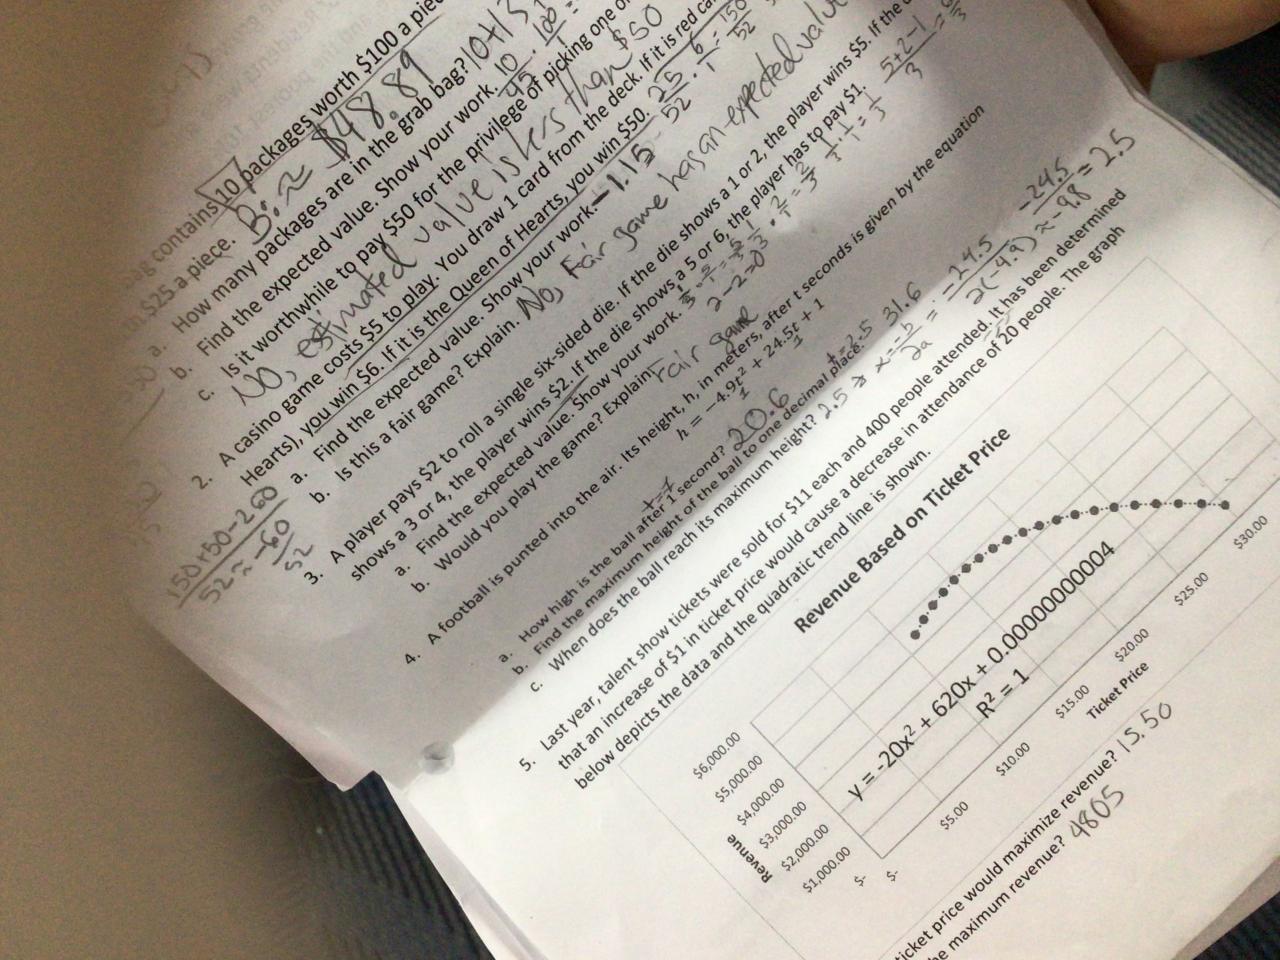 bag contains 10 packages worth $100 a piece
$25 a piece. B: ≈ $48.89
a. How many packages are in the grab bag? 10+13
b. Find the expected value. Show your work. 10/45 · 100
c. Is it worthwhile to pay $50 for the privilege of picking one
No, estimated value is less than $50
2. A casino game costs $5 to play. You draw 1 card from the deck. If it is red
Hearts), you win $6. If it is the Queen of Hearts, you win $50. 25/52 · 6/1 = 150/52
a. Find the expected value. Show your work. -1.15
b. Is this a fair game? Explain. No, Fair game has an expected value
150+50-260/52 ≈ -60/52
3. A player pays $2 to roll a single six-sided die. If the die shows a 1 or 2, the player wins $5. If the
shows a 3 or 4, the player wins $2. If the die shows a 5 or 6, the player has to pay $1.
a. Find the expected value. Show your work.
5+2-1/3
2-2=0
b. Would you play the game? Explain. Fair game
4. A football is punted into the air. Its height, h, in meters, after t seconds is given by the equation
h = −4.9t² + 24.5t + 1
a. How high is the ball after 1 second? 20.6
t=1
b. Find the maximum height of the ball to one decimal place. t=2.5 31.6
c. When does the ball reach its maximum height? 2.5 x = -b/2a = -24.5/2(-4.9) ≈ -24.5/-9.8 = 2.5
5. Last year, talent show tickets were sold for $11 each and 400 people attended. It has been determined
that an increase of $1 in ticket price would cause a decrease in attendance of 20 people. The graph
below depicts the data and the quadratic trend line is shown.
Revenue Based on Ticket Price
Revenue
$6,000.00
$5,000.00
$4,000.00
$3,000.00
$2,000.00
$1,000.00
$-
y = -20x² + 620x + 0.00000000004
R² = 1
$- $5.00 $10.00 $15.00 $20.00 $25.00 $30.00
Ticket Price
ticket price would maximize revenue? 15.50
the maximum revenue? 4805